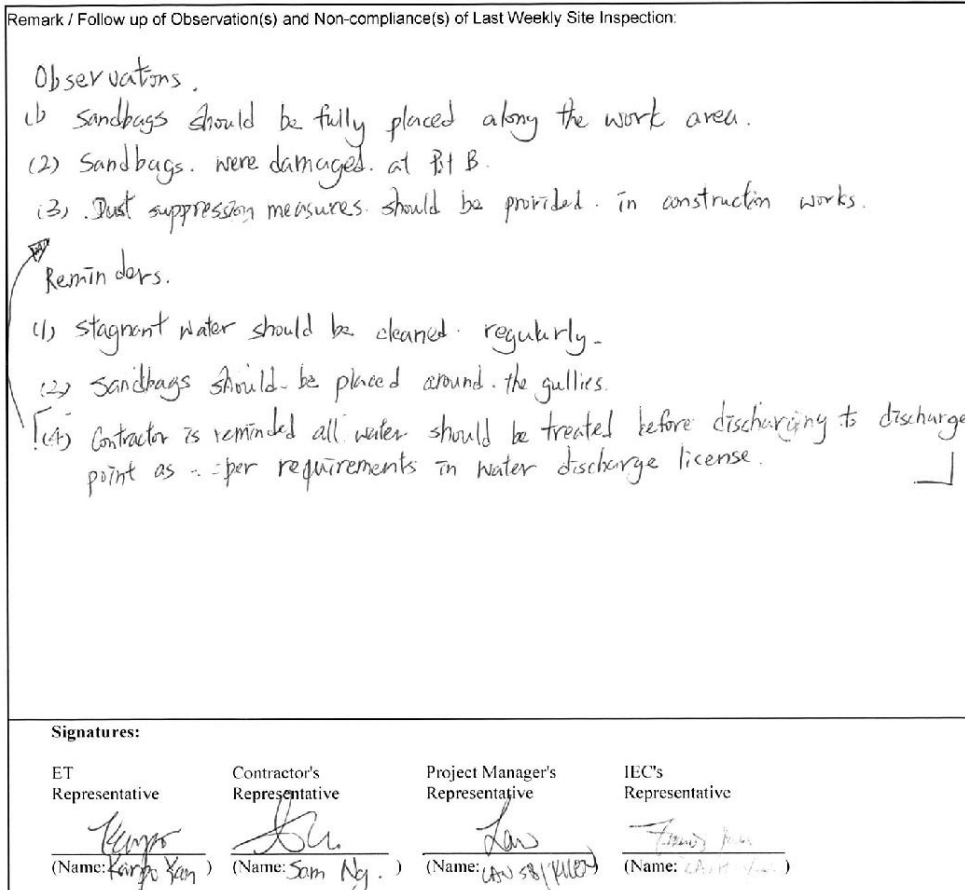 Remark / Follow up of Observation(s) and Non-compliance(s) of Last Weekly Site Inspection:
Observations.
(1) Sandbags should be fully placed along the work area.
(2) Sandbags. were damaged. at Pit B.
(3) . Dust suppression measures. should be provided. in construction works.
Reminders.
(1) Stagnant water should be cleaned. regularly.
(2) Sandbags should be placed around. the gullies.
(4) Contractor is reminded all water should be treated before discharging to discharge
point as per requirements in water discharge license.
Signatures:
ET Contractor's Project Manager's IEC's
Representative Representative Representative Representative
Law
(Name: Yan ) (Name: Sam Ng. ) (Name: ) (Name: )